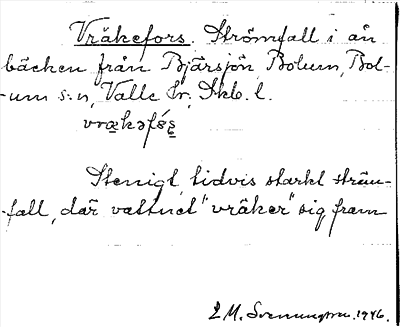 Vråkefors. Strömfall i ån
bäcken från Bjärsjön, Bolum, Bol-
-um s:n, Valle hr, Skb. l.
Stenigt, tidvis starkt ström-
-fall, där vattnet "vräker" sig fram
L M. Svenungsson. 1946.